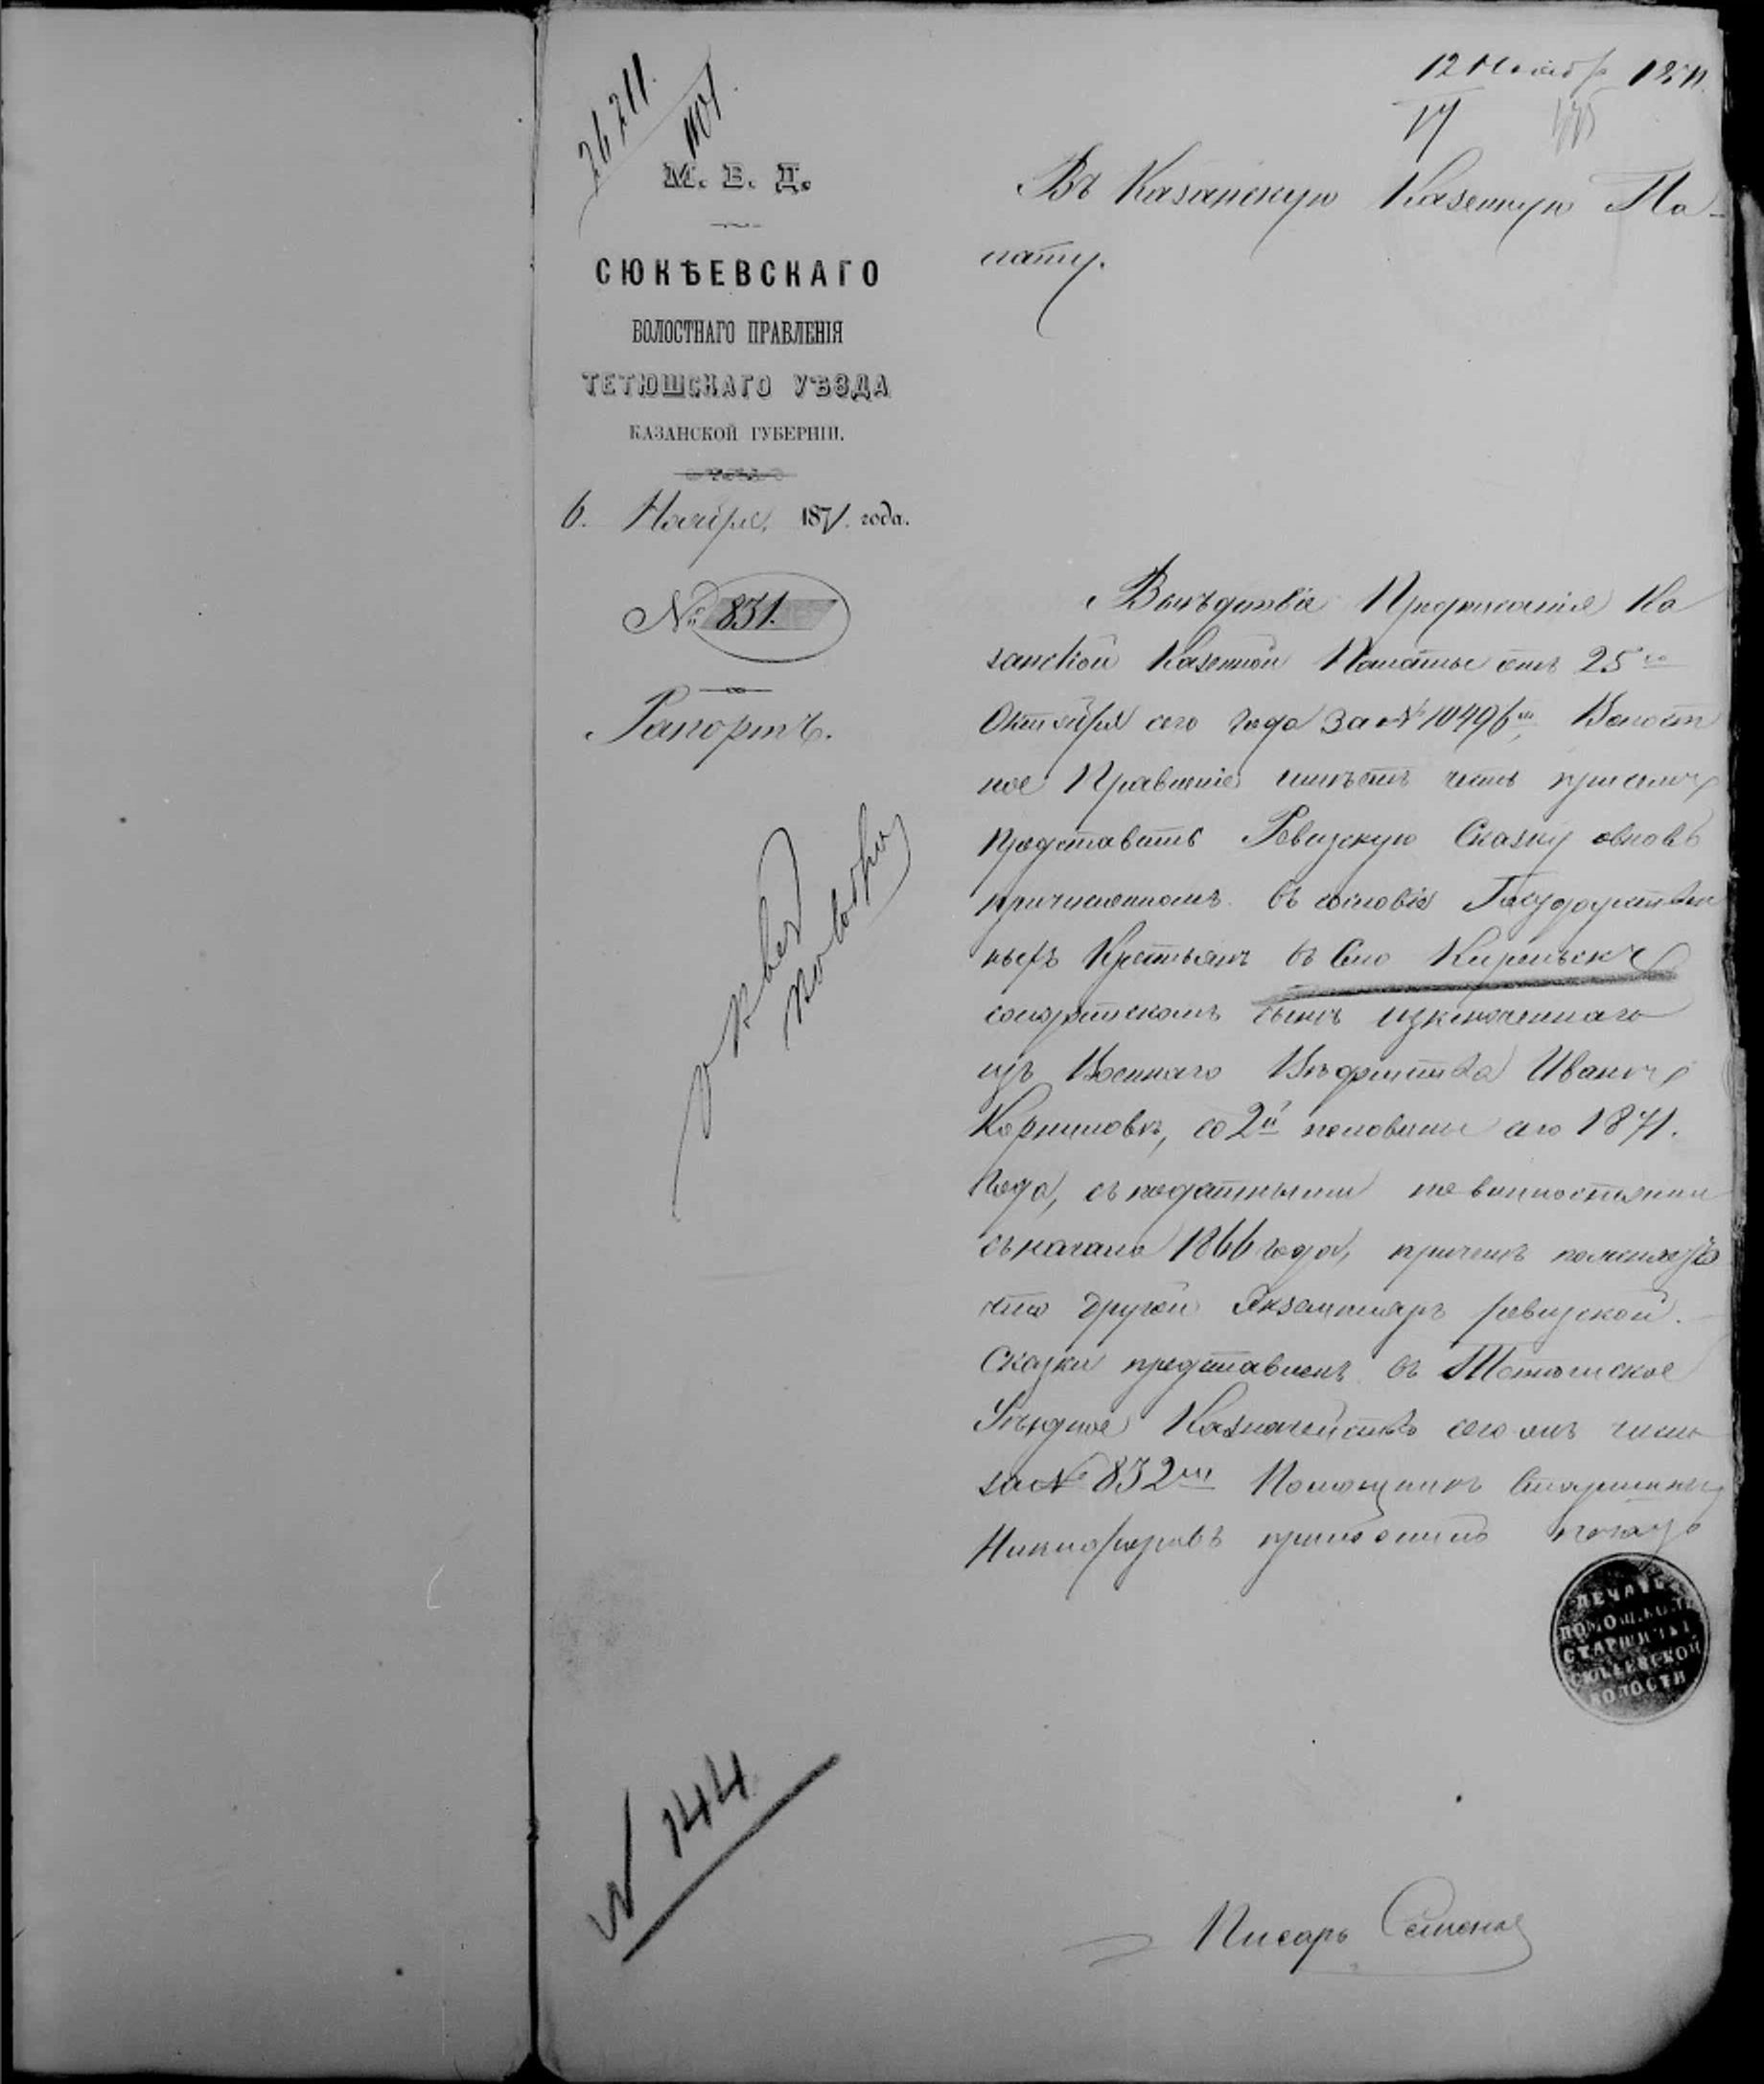 26711.
1101.
12 Ноябр 1871.
М. В. Д.
СЮКѢЕВСКАГО
ВОЛОСТНАГО ПРАВЛЕНІЯ
ТЕТЮШСКАГО УѢЗДА
КАЗАНСКОЙ ГУБЕРНІИ.
6. Ноября, 1871. года.
№ 831.
Рапортъ.
Въ Казанскую Казенную Па-
лату.
Вслѣдствіе Предписанія Ка
занской Казенной Палаты отъ 25го
Октября сего года за № 10496м, Волост
ное Правленіе имѣетъ честь при семъ
представить Ревизскую Сказку овновь
причисленномъ въ сословіе Государствен
ныхъ Крестьянъ въ Село
солдатскомъ сынѣ изключеннаго
изъ Военнаго Вѣдомства Иванѣ
Корниловѣ, со 2й половины сего 1871.
года, съ податными повинностями
съ начала 1866 года, причемъ
что другой Экземпляръ ревизской.
Сказки представленъ въ Тетюшское
Уѣздное Казначейство сего жъ числа
за № 832м Помощникъ Старшины
Никифоровъ приложилъ печать
ПЕЧАТЬ
ПОМОЩ.
СТАРШИНЫ
СЮКЕЕВСКОЙ
ВОЛОСТИ
№ 144
Писарь Семенов